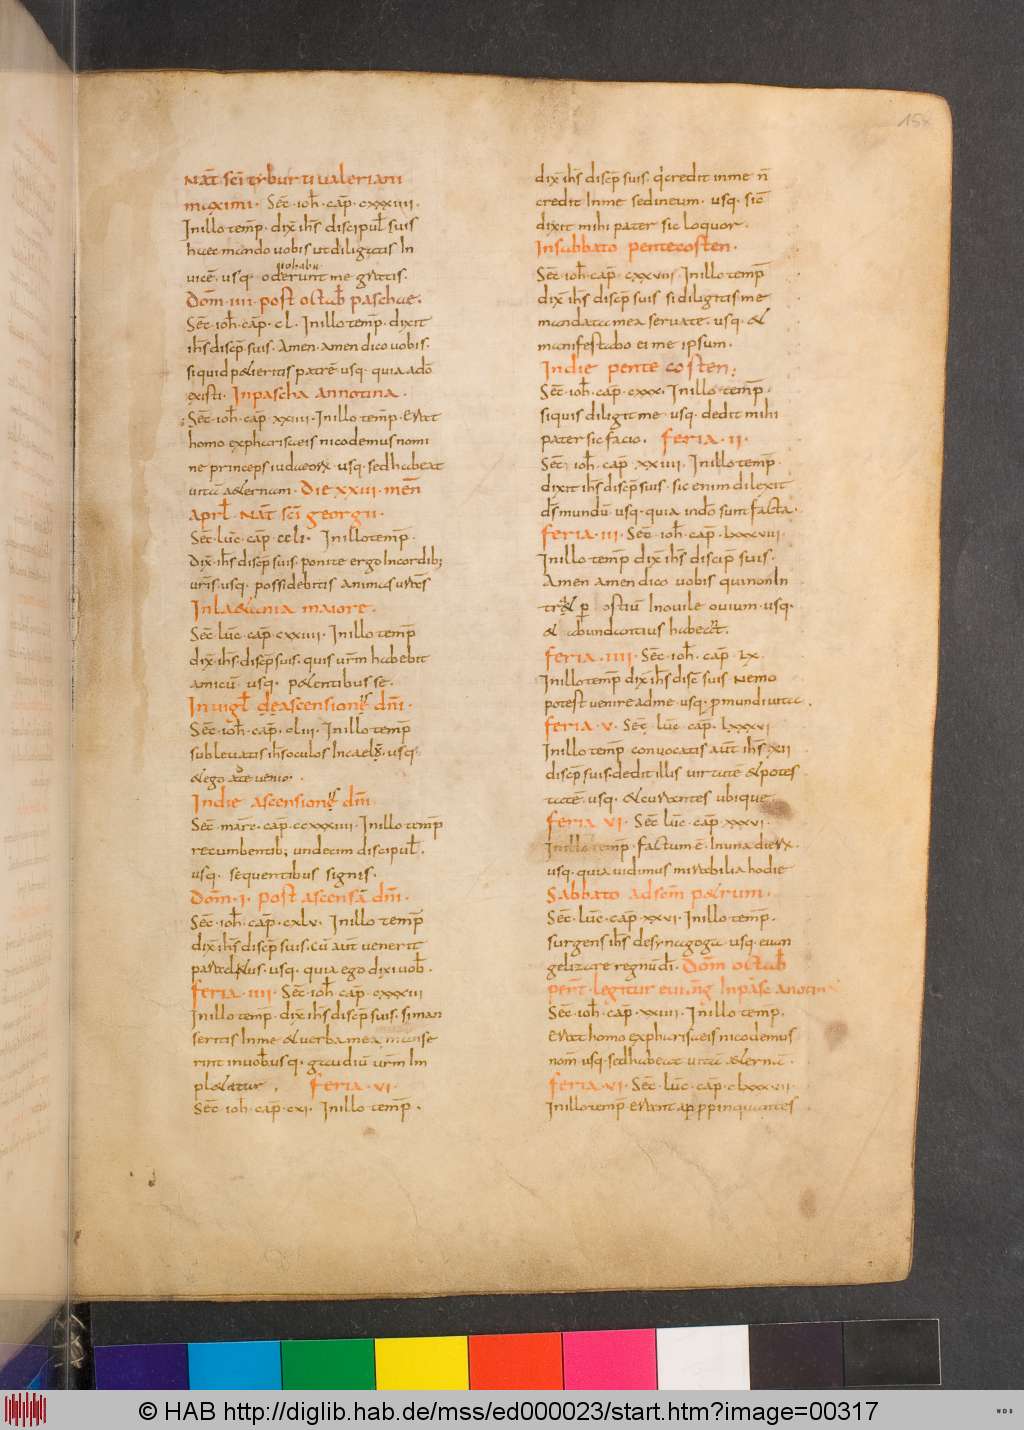 158
Nat̄ sc̄i tyburti valeriani
maximi. Sec̄. ioh̄. cap̄. cxxxiiii.
Inillo temp̄. dix̄ ih̄s discipul̄ suis
haec mando vobis ut diligatis In
vicē. usq. oderunt me gratis.
Dom̄. iiii. post octab̄ paschae.
Sec̄. ioh̄. cap̄. cl. Inillo temp̄. dixit
ih̄s discp̄ suis. Amen. amen dico vobis.
siquid petieritis patrē. usq. quia adō
existi. Inpascha annotina.
Sec̄. ioh̄. cap̄ xxiiii. Inillo temp̄. Erat
homo expharisaeis nicodemus nomi
ne princeps iudaeorx. usq. sedhabeat
vitā aeternam. Die xxiii. men̄
aprl̄. Nat̄ sc̄i georgii.
Sec̄. luc̄. cap̄. ccli. Inillotemp̄.
Dix̄. ih̄s discp̄ suis. ponite ergo Incordib;
ur̄is. usq. possidebitis animas ur̄as
Inlaetania maiore.
Sec̄. luc̄. cap̄. cxxiiii. Inillo temp̄
dix̄. ih̄s. discp̄ suis. quis ur̄m habebit
amicū. usq. petentibus se.
Inuigl̄ deascensione dn̄i.
Sec̄. ioh̄. cap̄. cliii. Inillo temp̄
subleuatis ih̄s oculos Incaelū. usq.
et ego ate venio.
Indie ascensione dn̄i
Sec̄. marc̄. cap̄. ccxxxiiii. Inillo temp̄
recumbentib; undecim discipul̄.
usq. sequentibus signis.
Dom̄. i. post ascensā dn̄i.
Sec̄. ioh̄. cap̄. cxlv. Inillo temp̄
dix̄. ih̄s discp̄ suis. cū aut̄ venerit
paracletus. usq. quia ego dixi uob̄.
feria. iiii. Sec̄. ioh̄. cap̄. cxxxiii
Inillo temp̄. dix̄. ih̄s discp̄ suis. siman
seritis Inme et uerba mea manse
rint inuobus usq. gaudiū ur̄m Im
pleatur. feria. vi.
Sec̄. ioh̄. cap̄. cxi. Inillo temp̄.
dix̄ ih̄s discp̄ suis. qͥcredit inme n̄
credit Inme sedineum. usq. sicō
dixit mihi pater sic loquor.
Insabbato pentecosten.
Sec̄. ioh̄. cap̄. cxxvii. Inillo temp̄
dix̄ ih̄s discp̄ suis si diligitis me
mandata mea seruate. usq. et
manifestabo ei me ipsum.
Indie pente costen;
Sec̄. ioh̄. cap̄. cxxx. Inillo temp̄.
siquis diligit me. usq. dedit mihi
pater sic facio. feria. ii.
Sec̄. ioh̄. cap̄ xxiiii. Inillo temp̄.
dixit ih̄s discp̄ suis. sic enim dilexit
ds̄ mundū. usq. quia indō sunt facta.
feria. iii. Sec̄. ioh̄. cap̄. lxxxviii.
Inillo temp̄ dix̄ ih̄s discip̄ suis.
Amen amen dico vobis quinonIn
trat p ostiū Inouile ouium. usq.
et abundantius habeant.
feria. iiii. Sec̄. ioh̄. cap̄ lx.
Inillo temp̄ dix̄ ih̄s disc̄ suis Nemo
potest venire adme. usq. p mundi uita.
feria. v. Sec̄. luc̄. cap̄. lxxxvi
Inillo temp̄ conuocatis aut̄ ih̄s xii
discp̄ suis. dedit illis uirtutē et potes
tatē. usq. et curantes ubique
feria vi. Sec̄. luc̄. cap̄ xxxvi.
Inillo temp̄. factum ē. Inuna dierx.
usq. quia uidimus mirabilia hodie
Sabbato adsc̄m petrum.
Sec̄. luc̄. cap̄ xxvi. Inillo temp̄.
surgens ih̄s desynagoga usq. euan
gelizare regnū di. Dom̄ octab̄
pent̄. legitur euang Inpasc anotina
Sec̄. ioh̄. cap̄. xxiiii. Inillo temp.
Erat homo expharisaeis nicodemus
nom̄ usq. sedhabeat uitā aeternā.
feria. vi. Sec̄. luc̄. cap̄. clxxxvii.
Inillo temp̄. erant ap ppinquantes
© HAB http://diglib.hab.de/mss/ed000023/start.htm?image=00317
WDB